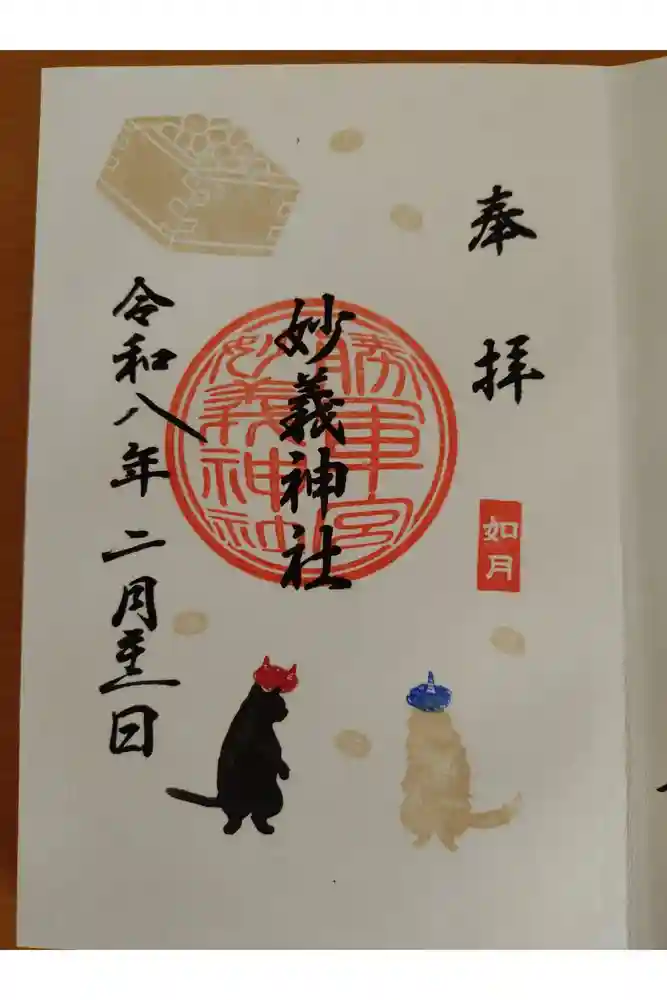 奉拝
如月
妙義神社
勝軍宮
妙義神社
令和八年二月
日